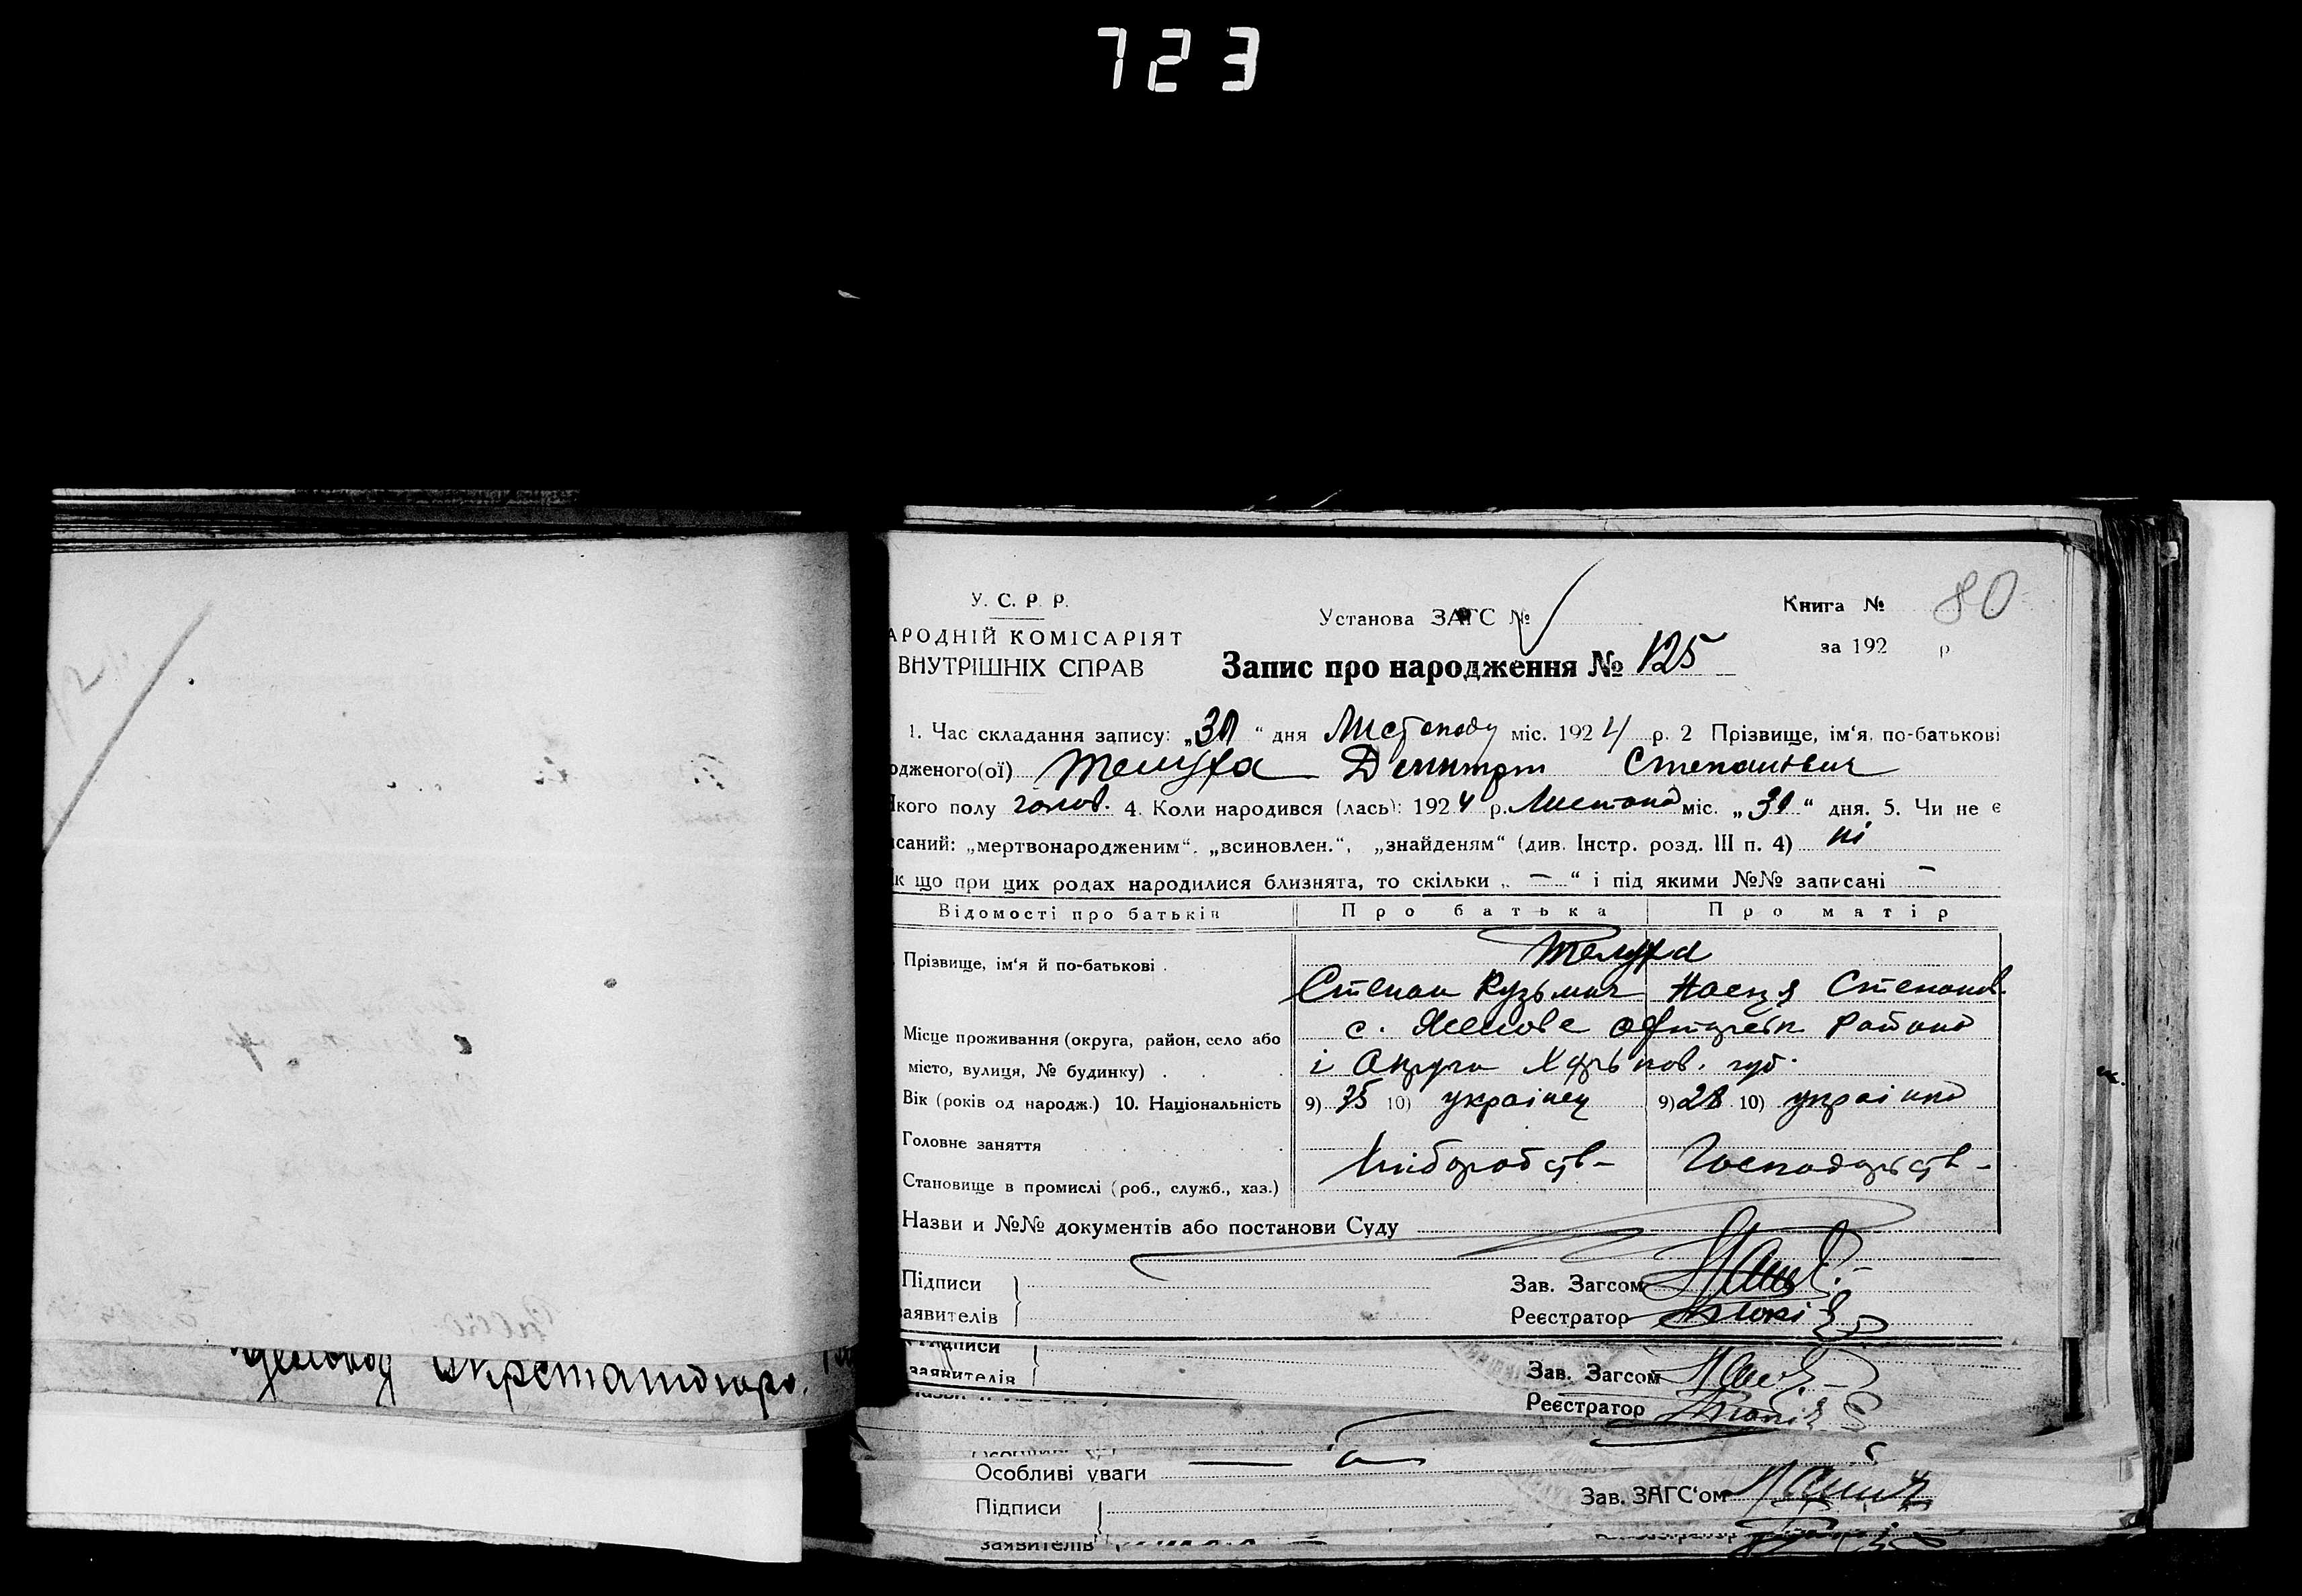 723
80
У. С. Р. Р.
АРОДНІЙ КОМІСАРІЯТ
ВНУТРІШНІХ СПРАВ
Установа ЗАГС №
Книга №
за 192 р
Запис про народження № 125
1. Час складання запису: „30 “ дня Листопаду міс. 1924 р. 2 Прізвище, ім‘я, по-батькові
одженого(ої) Телуха Демитрт Степанович
Якого полу чолов. 4. Коли народився (лась): 1924 р. Листопад міс. „30“ дня. 5. Чи не є
исаний: „мертвонародженим“, „всиновлен.“, „знайденям“ (див. Інстр. розд. III п. 4) ні
Як що при цих родах народилися близнята, то скільки „ — “ і під якими №№ записані —
Відомості про батьків Про батька Про матір
Прізвище, ім‘я й по-батькові .
Телуха
Степан Кузьмич Настя Степанов.
Місце проживання (округа, район, село або
місто, вулиця, № будинку) .
с. района
і Округи Харьков. губ.
Вік (років од народж.) 10. Національність 9) 35 10) українец 9) 28 10) україна
Головне заняття
Хліборобств- Господарств-
Становище в промислі (роб., служб., хаз.)
Назви и №№ документів або постанови Суду
Підписи
заявителів
Зав. Загсом
Реєстратор
Підписи
заявителів
Зав. Загсом
Реєстратор
Особливі уваги
Підписи
Зав. ЗАГС‘ом
заявителів
Окрстатбюро.